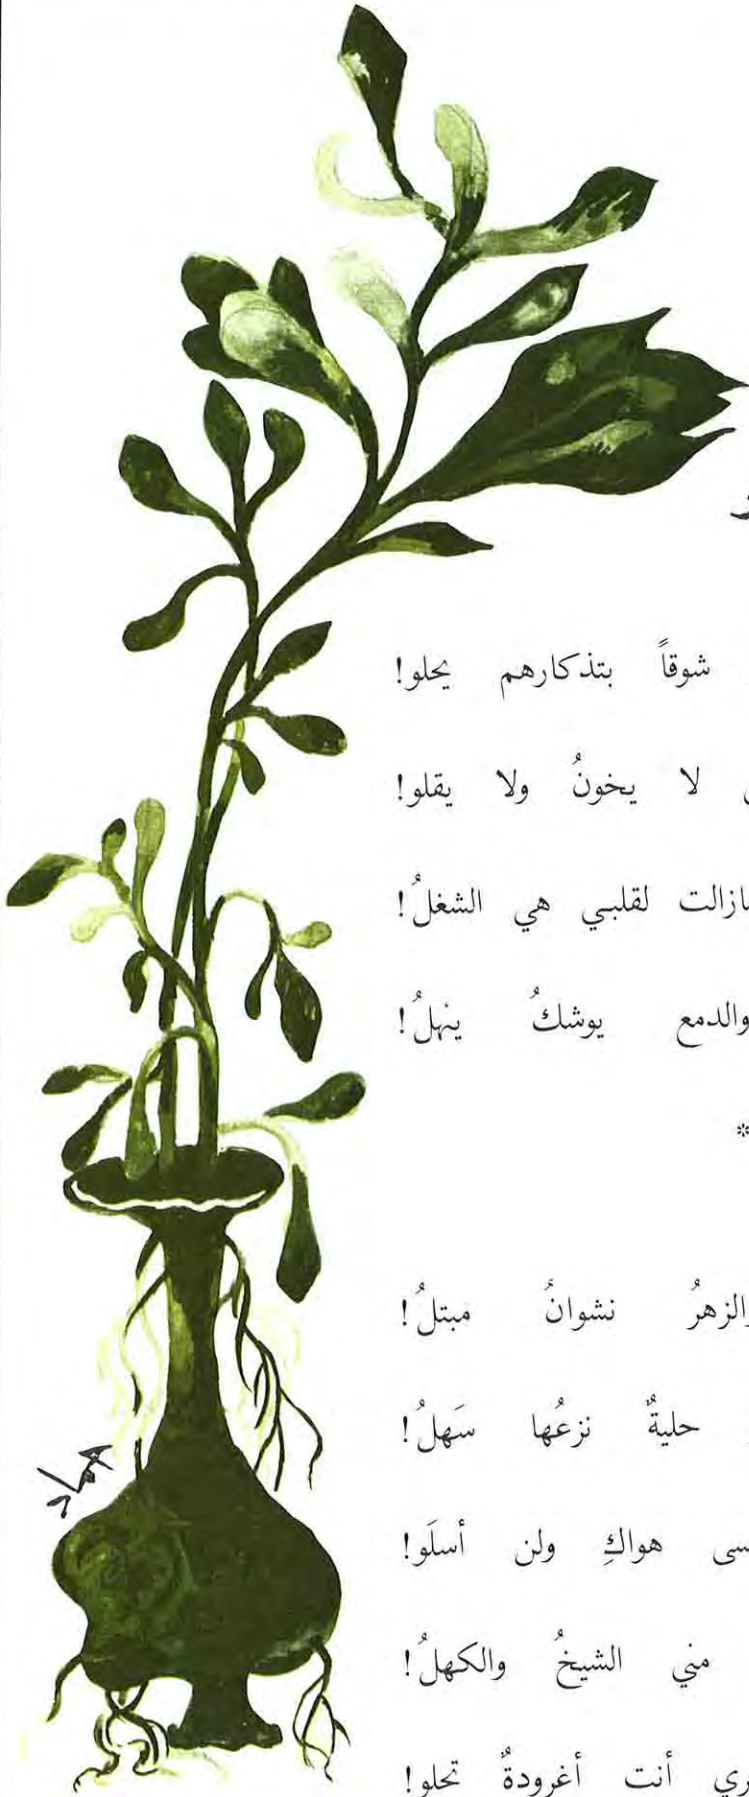 شوقاً بتذكارهم يحلو!
لا يخونُ ولا يقلو!
لقلبي هي الشغلُ!
والدمع يوشكُ ينهلُ!
*
نشوانُ مبتلُ!
حليةٌ نزعُها سَهلُ!
هواكِ ولن أسلَو!
مني الشيخُ والكهلُ!
أنت أغرودةٌ تحلو!